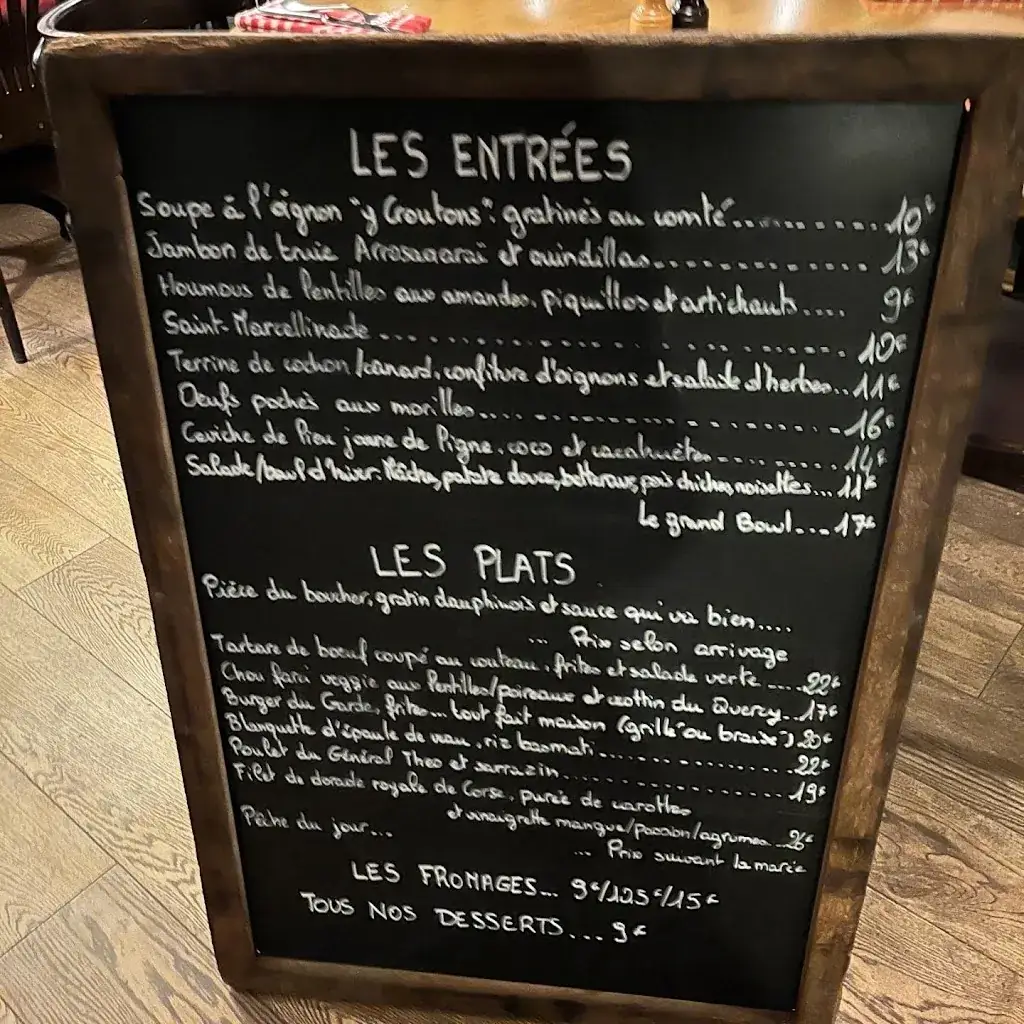 LES ENTRÉES
Soupe à l'oignon "y Croutons": gratinés au comté......... 10€
Jambon de truie Arrosagaraï et guindillas............ 13€
Houmous de lentilles aux amandes, piquillos et artichauts.... 9€
Saint-Marcellinade.................. 10€
Terrine de cochon/canard, confiture d'oignons et salade d'herbes.. 11€
Oeufs pochés aux morilles.................. 16€
Ceviche de lieu jaune de ligne, coco et cacahuètes......... 14€
Salade/bowl d'hiver: Mâche, patate douce, betterave, pois chiches, noisettes... 11€
Le grand Bowl... 17€
LES PLATS
Pièce du boucher, gratin dauphinois et sauce qui va bien....
... Prix selon arrivage
Tartare de boeuf coupé au couteau, frites et salade verte .... 22€
Chou farci veggie aux lentilles/poireaux et crottin du Quercy.. 17€
Burger du Garde, frites... tout fait maison (grillé ou braisé) 20€
Blanquette d'épaule de veau, riz basmati............... 22€
Poulet du Général Theo et sarrazin.................. 19€
Filet de dorade royale de Corse, purée de carottes
et vinaigrette mangue/passion/agrumes ... 26€
Pêche du jour...
... Prix suivant la marée
LES FROMAGES... 9€/12,5€/15€
TOUS NOS DESSERTS... 9€